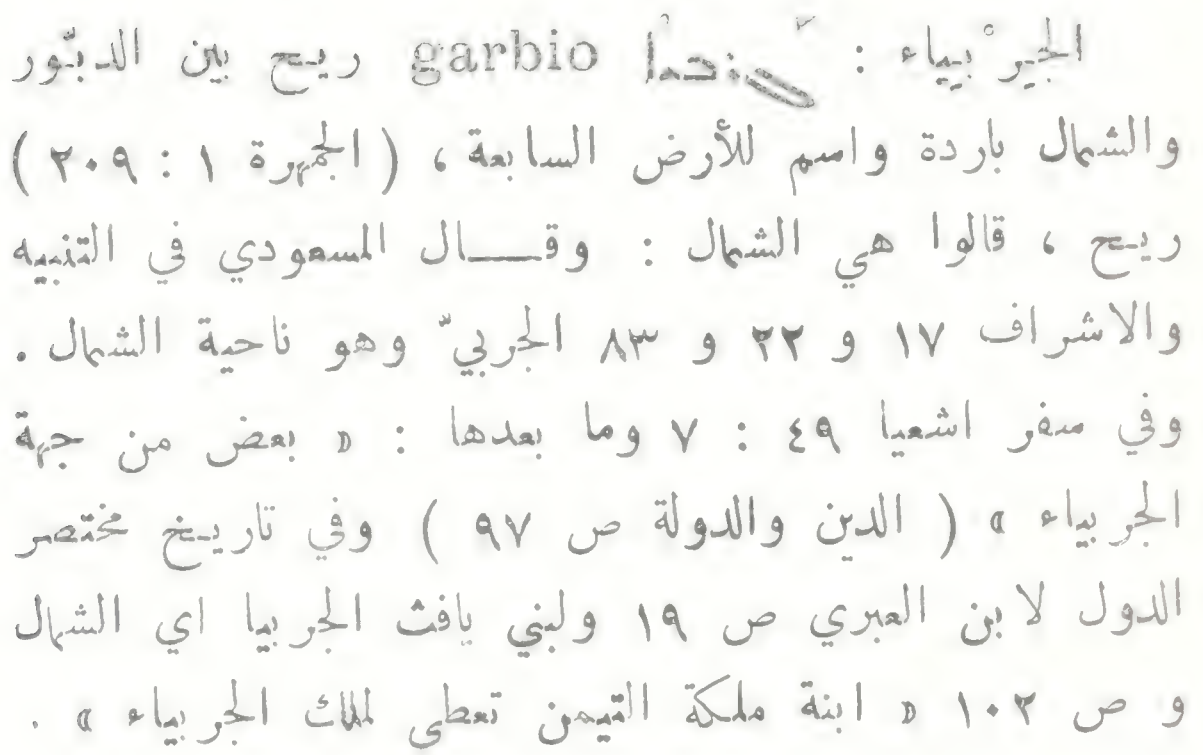 الجِرْبياء : ܓܪܒܝܐ garbio ريح بين الدبّور
والشمال باردة واسم للأرض السابعة ، ( الجمهرة ١ : ٢٠٩ )
ريح ، قالوا هي الشمال : وقـــال المسعودي في التنبيه
والاشراف ١٧ و ٢٢ و ٨٣ الجربيّ وهو ناحية الشمال .
وفي سفر اشعيا ٤٩ : ٧ وما بعدها : « بعض من جهة
الجربياء » ( الدين والدولة ص ٩٧ ) وفي تاريخ مختصر
الدول لابن العبري ص ١٩ ولبني يافث الجربيا اي الشمال
و ص ١٠٢ « ابنة ملكة التيمن تعطى لملك الجربياء » .